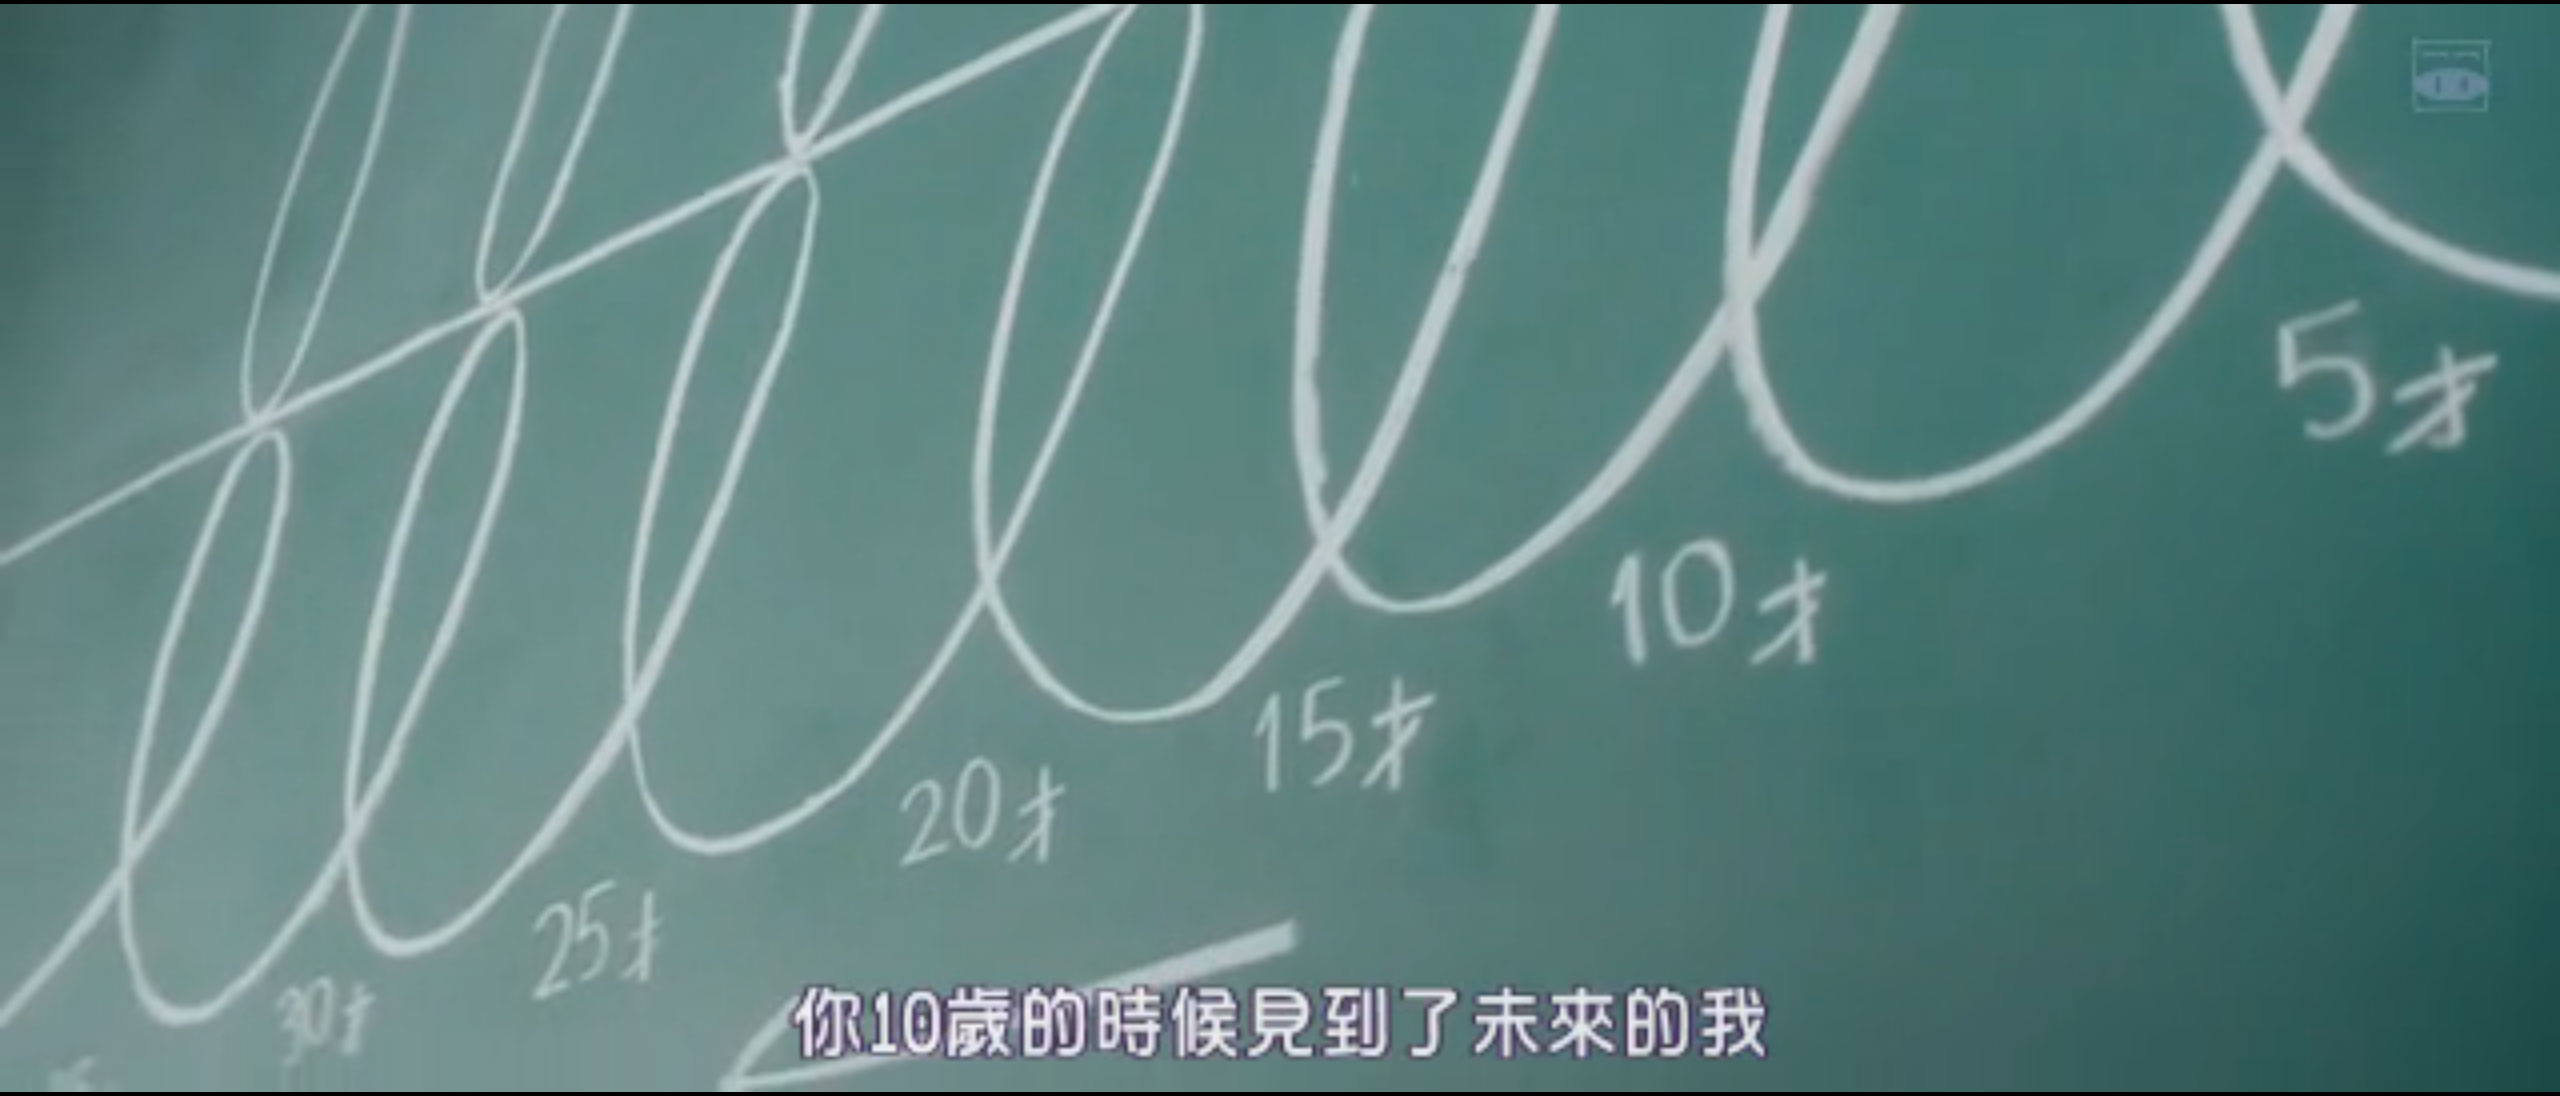 5才
10才
15才
20才
25才
30才
你10歲的時候見到了未來的我